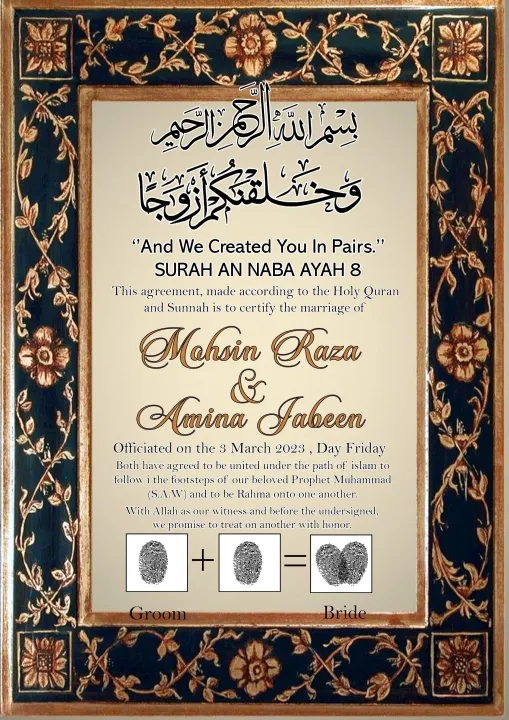 بِسْمِ اللَّهِ الرَّحْمَٰنِ الرَّحِيمِ
وَخَلَقْنَاكُمْ أَزْوَاجًا
‘’And We Created You In Pairs.’’
SURAH AN NABA AYAH 8
This agreement, made according to the Holy Quran
and Sunnah is to certify the marriage of
Mohsin Raza
&
Amina Jabeen
Officiated on the 3 March 2023 , Day Friday
Both have agreed to be united under the path of islam to
follow i the footsteps of our beloved Prophet Muhammad
(S.A.W) and to be Rahma onto one another.
With Allah as our witness and before the undersigned,
we promise to treat on another with honor.
+ =
Groom Bride